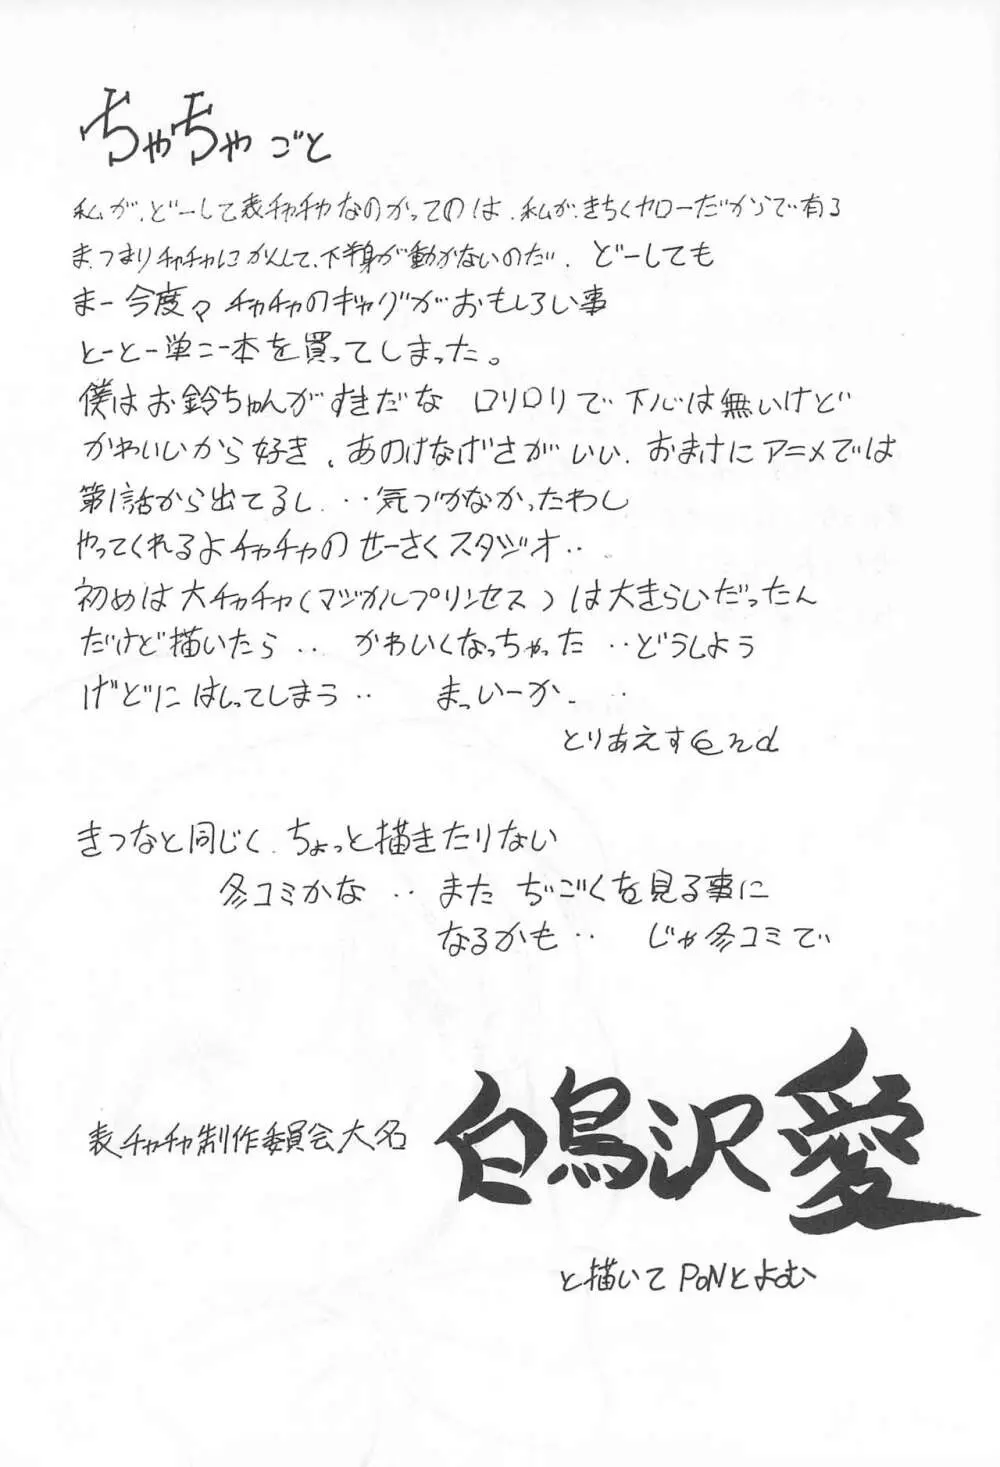 ちゃちゃごと
私が、どーして表チャチャなのかってのは、私が、きちくヤローだからで有る
ま、つまりチャチャにかんして、下半身が動かないのだ、どーしても
まー今度々チャチャのギャグがおもしろい事
とーとー単二一本を買ってしまった。
僕はお鈴ちゃんがすきだな ロリロリで下心は無いけど
かわいいから好き、あのけなげさがいい、おまけにアニメでは
第1話から出てるし、‥気づかなかったわし
やってくれるよチャチャのせーさくスタジオ‥
初めは大チャチャ(マジカルプリンセス)は大きらいだったん
だけど描いたら‥ かわいくなっちゃった‥どうしよう
げどにはしってしまう‥ まっいーか、‥
とりあえすend
きつなと同じく、ちょっと描きたりない
冬コミかな‥またぢごくを見る事に
なるかも‥ じゃ冬コミで
表チャチャ制作委員会大名
白鳥沢愛
と描いてPoNとよむ